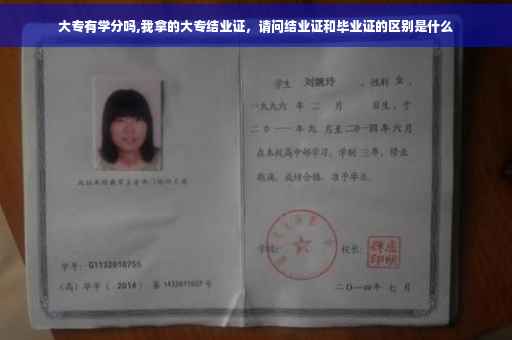 大专有学分吗,我拿的大专结业证，请问结业证和毕业证的区别是什么
学生 刘婉玲 ，性别 女 ，
一九九六 年 二 月 日生，于
二〇一一 年 九 月至 二〇一四 年 六 月
在本校高中部学习，学制 三 年，修业
期满，成绩合格，准予毕业。
学校： 校长：
二〇一四年 七 月
学号： G1132010755
（高）毕字（ 2014 ）第 1432011027 号